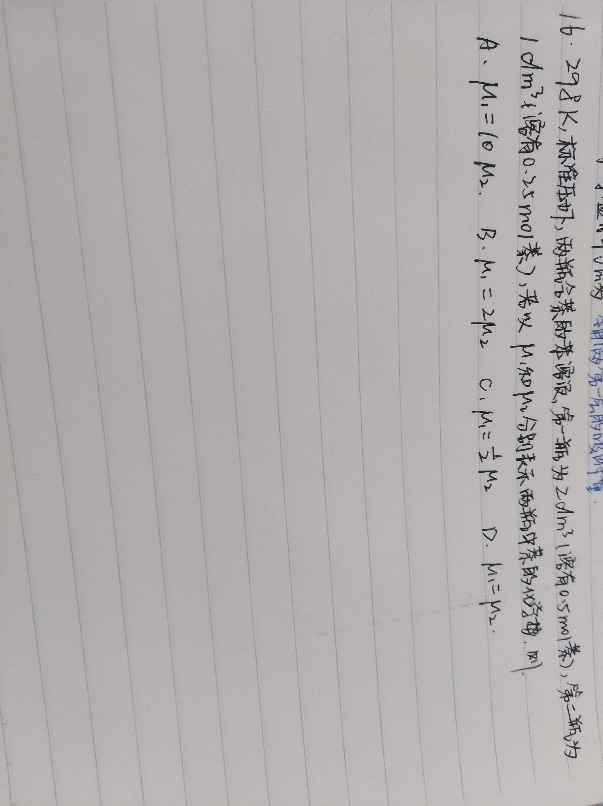 16. 298K, 标准压力下, 两瓶含萘的苯溶液, 第一瓶为2dm³(溶有0.5mol萘), 第二瓶为
1dm³(溶有0.25mol萘), 若以 μ₁和μ₂分别表示两瓶中萘的化学势. 则.
A. μ₁=10μ₂. B. μ₁=2μ₂ C. μ₁=½μ₂ D. μ₁=μ₂.